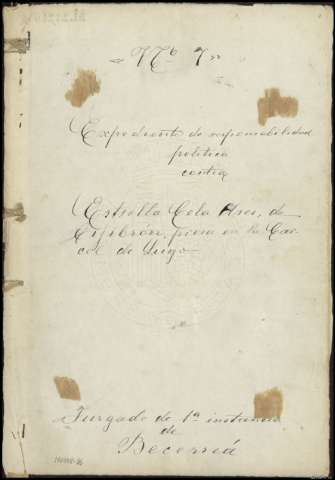 Nº 7
Expediente de responsabilidad
politica
contra
Estrella Cela Ares, de
presa en la Car-
cel de Lugo
Juzgado de 1ª instancia
de
Becerreá